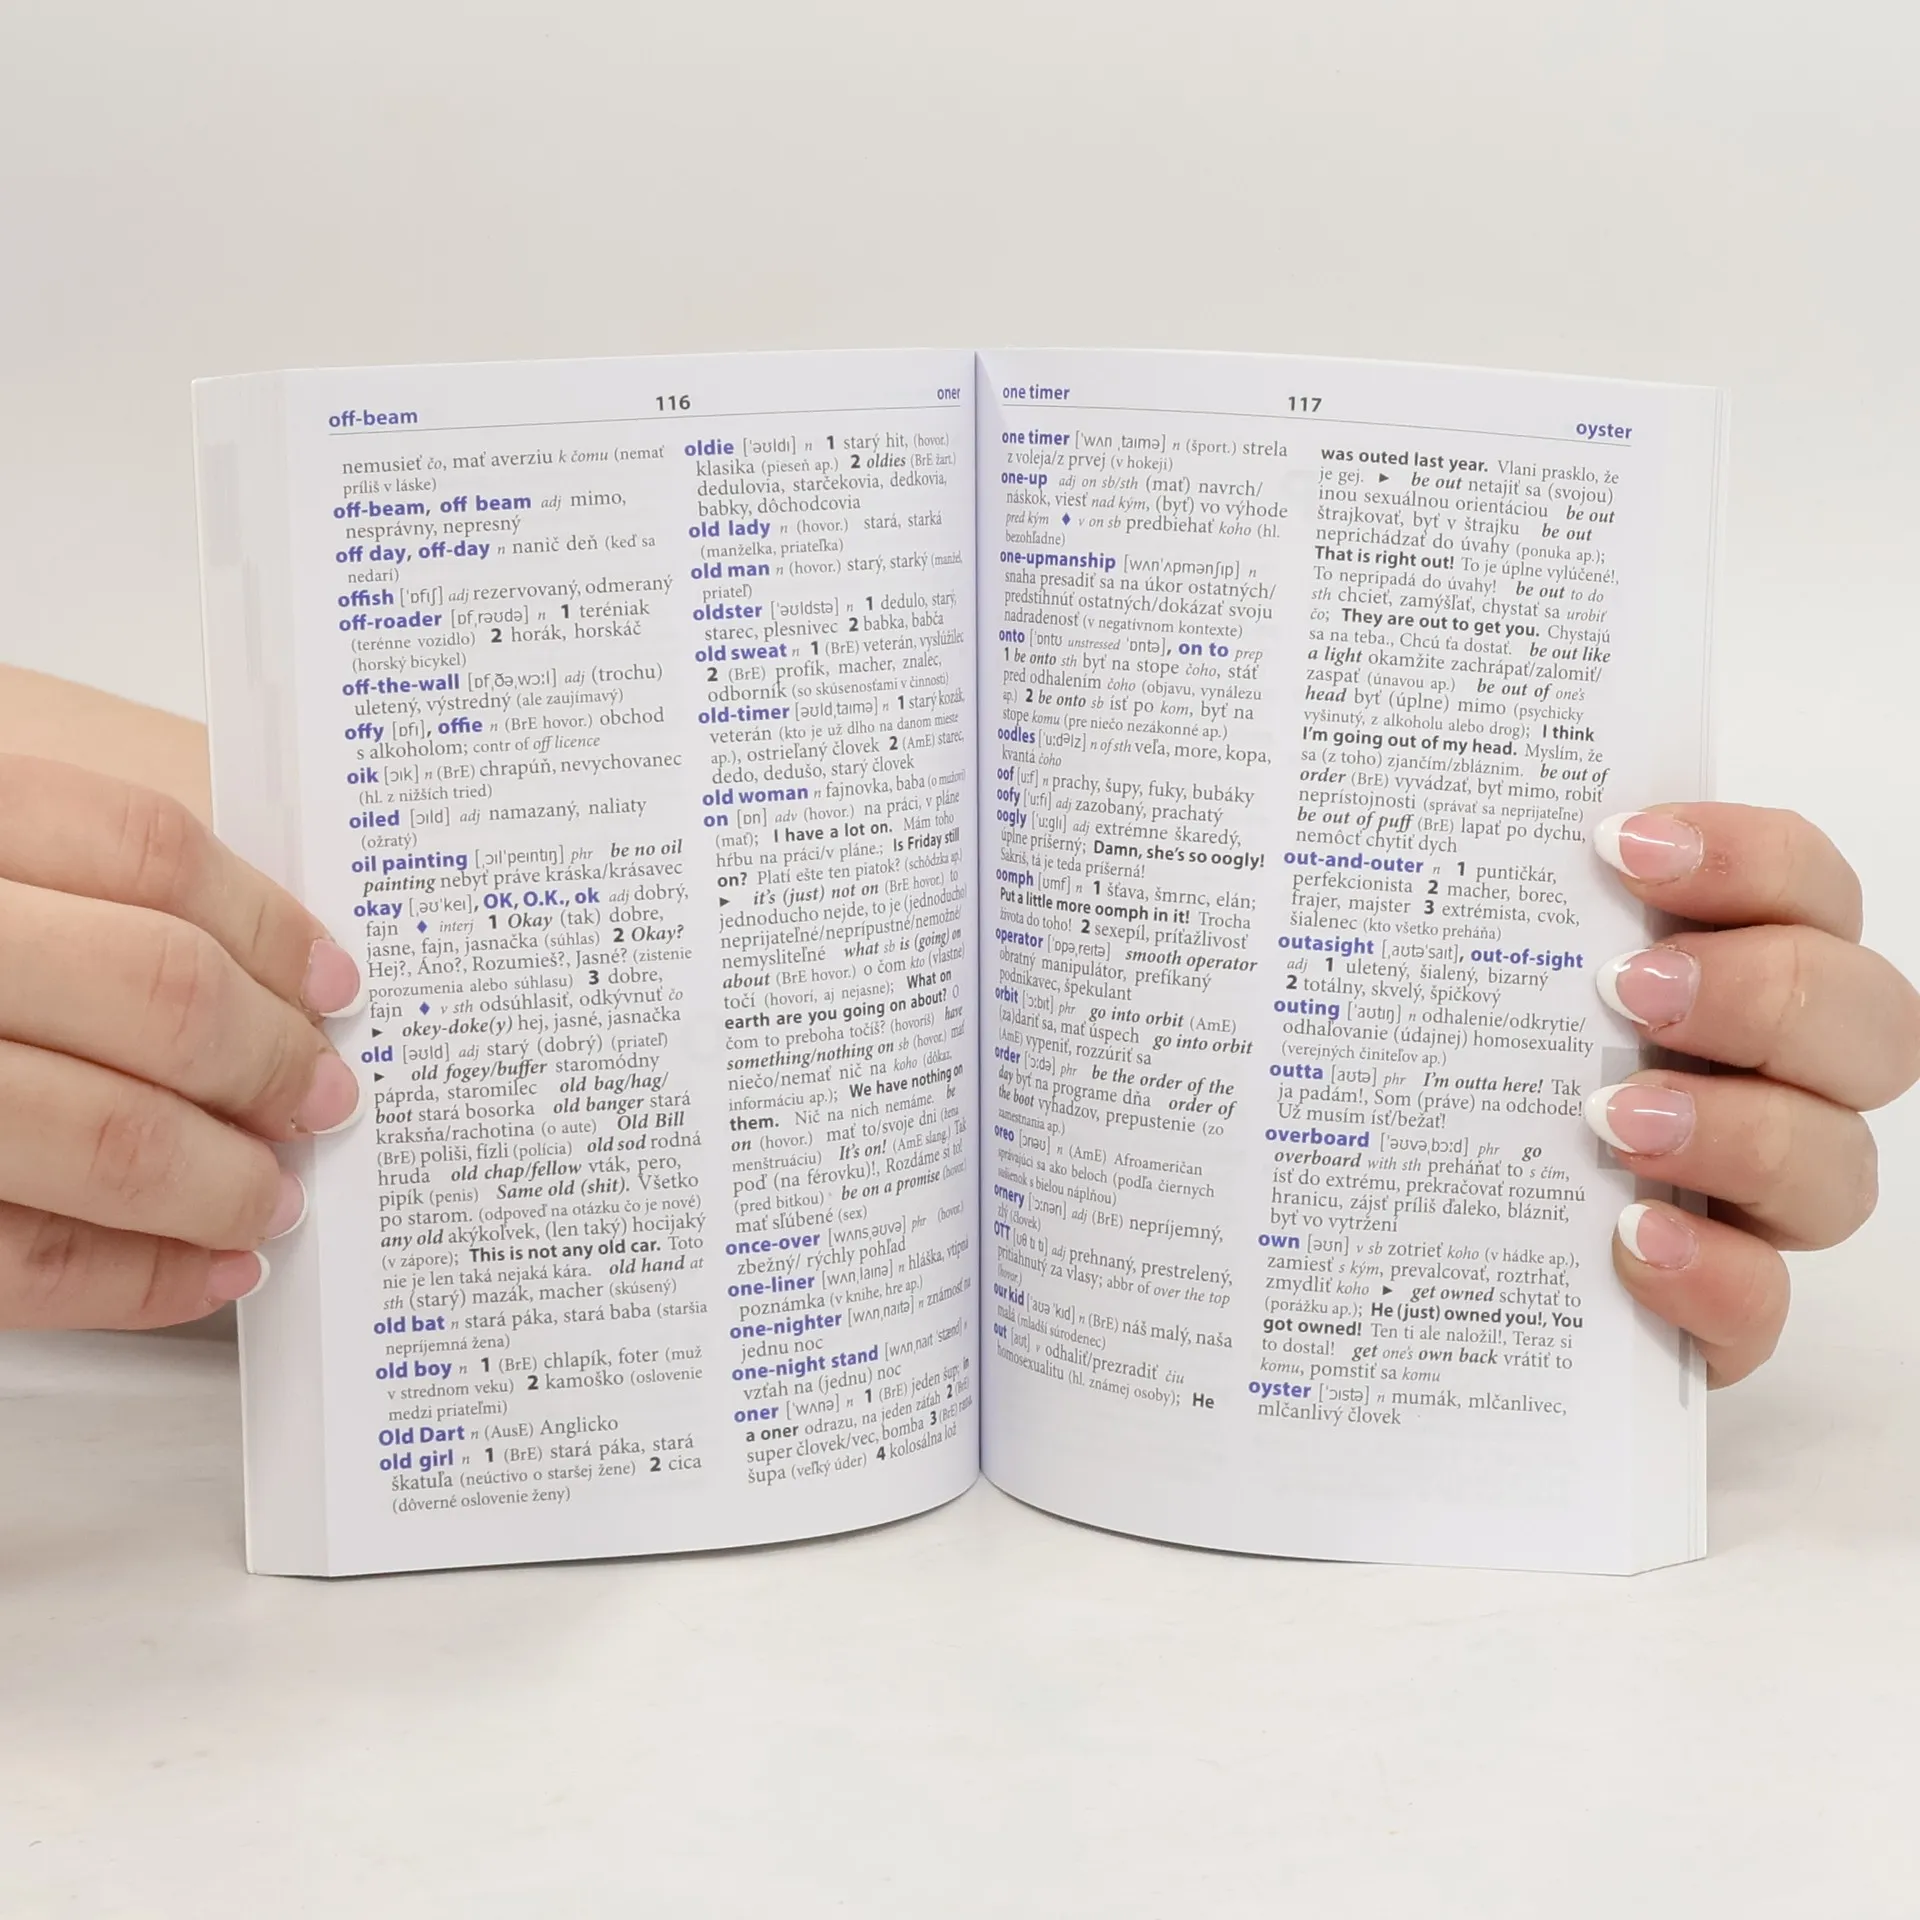 off-beam 116 oner
nemusieť čo, mať averziu k čomu (nemať
príliš v láske)
off-beam, off beam adj mimo,
nesprávny, nepresný
off day, off-day n nanič deň (keď sa
nedarí)
offish [ˈɒfɪʃ] adj rezervovaný, odmeraný
off-roader [ɒfˌrəʊdə] n 1 teréniak
(terénne vozidlo) 2 horák, horskáč
(horský bicykel)
off-the-wall [ɒfˌðəˌwɔːl] adj (trochu)
uletený, výstredný (ale zaujímavý)
offy [ɒfi], offie n (BrE hovor.) obchod
s alkoholom; contr of off licence
oik [ɔɪk] n (BrE) chrapúň, nevychovanec
(hl. z nižších tried)
oiled [ɔɪld] adj namazaný, naliaty
(ožratý)
oil painting [ˌɔɪlˈpeɪntɪŋ] phr be no oil
painting nebyť práve kráska/krásavec
okay [ˌəʊˈkeɪ], OK, O.K., ok adj dobrý,
fajn ♦ interj 1 Okay (tak) dobre,
jasne, fajn, jasnačka (súhlas) 2 Okay?
Hej?, Áno?, Rozumieš?, Jasné? (zistenie
porozumenia alebo súhlasu) 3 dobre,
fajn ♦ v sth odsúhlasiť, odkývnuť čo
► okey-doke(y) hej, jasné, jasnačka
old [əʊld] adj starý (dobrý) (priateľ)
► old fogey/buffer staromódny
páprda, staromilec old bag/hag/
boot stará bosorka old banger stará
kraksňa/rachotina (o aute) Old Bill
(BrE) poliši, fízli (polícia) old sod rodná
hruda old chap/fellow vták, pero,
pipík (penis) Same old (shit). Všetko
po starom. (odpoveď na otázku čo je nové)
any old akýkoľvek, (len taký) hocijaký
(v zápore); This is not any old car. Toto
nie je len taká nejaká kára. old hand at
sth (starý) mazák, macher (skúsený)
old bat n stará páka, stará baba (staršia
nepríjemná žena)
old boy n 1 (BrE) chlapík, foter (muž
v strednom veku) 2 kamoško (oslovenie
medzi priateľmi)
Old Dart n (AusE) Anglicko
old girl n 1 (BrE) stará páka, stará
škatuľa (neúctivo o staršej žene) 2 cica
(dôverné oslovenie ženy)
oldie [ˈəʊldɪ] n 1 starý hit, (hovor.)
klasika (pieseň ap.) 2 oldies (BrE žart.)
dedulovia, starčekovia, dedkovia,
babky, dôchodcovia
old lady n (hovor.) stará, starká
(manželka, priateľka)
old man n (hovor.) starý, starký (manžel,
priateľ)
oldster [ˈəʊldstə] n 1 dedulo, starý,
starec, plesnivec 2 babka, babča
old sweat n 1 (BrE) veterán, vyslúžilec
2 (BrE) profík, macher, znalec,
odborník (so skúsenosťami v činnosti)
old-timer [əʊldˌtaɪmə] n 1 starý kozák,
veterán (kto je už dlho na danom mieste
ap.), ostrieľaný človek 2 (AmE) starec,
dedo, dedušo, starý človek
old woman n fajnovka, baba (o mužovi)
on [ɒn] adv (hovor.) na práci, v pláne
(mať); I have a lot on. Mám toho
hŕbu na práci/v pláne.; Is Friday still
on? Platí ešte ten piatok? (schôdzka ap.)
► it's (just) not on (BrE hovor.) to
jednoducho nejde, to je (jednoducho)
neprijateľné/neprípustné/nemožné/
nemysliteľné what sb is (going) on
about (BrE hovor.) o čom kto (vlastne)
točí (hovorí, aj nejasne); What on
earth are you going on about? O
čom to preboha točíš? (hovoríš) have
something/nothing on sb (hovor.) mať
niečo/nemať nič na koho (dôkaz,
informáciu ap.); We have nothing on
them. Nič na nich nemáme. be
on (hovor.) mať to/svoje dni (žena
menštruáciu) It's on! (AmE slang.) Tak
poď (na férovku)!, Rozdáme si to!
(pred bitkou) be on a promise (hovor.)
mať sľúbené (sex)
once-over [wʌnsˌəʊvə] phr (hovor.)
zbežný/ rýchly pohľad
one-liner [wʌnˌlaɪnə] n hláška, vtipná
poznámka (v knihe, hre ap.)
one-nighter [wʌnˌnaɪtə] n známosť na
jednu noc
one-night stand [wʌnˌnaɪt ˈstænd] n
vzťah na (jednu) noc
oner [ˈwʌnə] n 1 (BrE) jeden šup; in
a oner odrazu, na jeden záťah 2 (BrE)
super človek/vec, bomba 3 (BrE) rana,
šupa (veľký úder) 4 kolosálna lož
one timer 117 oyster
one timer [ˈwʌn ˌtaɪmə] n (šport.) strela
z voleja/z prvej (v hokeji)
one-up adj on sb/sth (mať) navrch/
náskok, viesť nad kým, (byť) vo výhode
pred kým ♦ v on sb predbiehať koho (hl.
bezohľadne)
one-upmanship [wʌnˈʌpmənʃɪp] n
snaha presadiť sa na úkor ostatných/
predstihnúť ostatných/dokázať svoju
nadradenosť (v negatívnom kontexte)
onto [ˈɒntʊ unstressed ˈɒntə], on to prep
1 be onto sth byť na stope čoho, stáť
pred odhalením čoho (objavu, vynálezu
ap.) 2 be onto sb ísť po kom, byť na
stope komu (pre niečo nezákonné ap.)
oodles [ˈuːdəlz] n of sth veľa, more, kopa,
kvantá čoho
oof [uːf] n prachy, šupy, fuky, bubáky
oofy [ˈuːfi] adj zazobaný, prachatý
oogly [ˈuːgli] adj extrémne škaredý,
úplne príšerný; Damn, she's so oogly!
Sakriš, tá je teda príšerná!
oomph [ʊmf] n 1 šťava, šmrnc, elán;
Put a little more oomph in it! Trocha
života do toho! 2 sexepíl, príťažlivosť
operator [ˈɒpəˌreɪtə] smooth operator
obratný manipulátor, prefíkaný
podnikavec, špekulant
orbit [ˈɔːbɪt] phr go into orbit (AmE)
(za)dariť sa, mať úspech go into orbit
(AmE) vypeniť, rozzúriť sa
order [ˈɔːdə] phr be the order of the
day byť na programe dňa order of
the boot vyhadzov, prepustenie (zo
zamestnania ap.)
oreo [ɔrɪəʊ] n (AmE) Afroameričan
správajúci sa ako beloch (podľa čiernych
sušienok s bielou náplňou)
ornery [ˈɔːnərɪ] adj (BrE) nepríjemný,
zlý (človek)
OTT adj prehnaný, prestrelený,
pritiahnutý za vlasy; abbr of over the top
(hovor.)
our kid [ˈaʊə ˈkɪd] n (BrE) náš malý, naša
malá (mladší súrodenec)
out [aʊt] v odhaliť/prezradiť čiu
homosexualitu (hl. známej osoby); He
was outed last year. Vlani prasklo, že
je gej. ► be out netajiť sa (svojou)
inou sexuálnou orientáciou be out
štrajkovať, byť v štrajku be out
neprichádzať do úvahy (ponuka ap.);
That is right out! To je úplne vylúčené!,
To nepripadá do úvahy! be out to do
sth chcieť, zamýšľať, chystať sa urobiť
čo; They are out to get you. Chystajú
sa na teba., Chcú ťa dostať. be out like
a light okamžite zachrápať/zalomiť/
zaspať (únavou ap.) be out of one's
head byť (úplne) mimo (psychicky
vyšinutý, z alkoholu alebo drog); I think
I'm going out of my head. Myslím, že
sa (z toho) zjančím/zbláznim. be out of
order (BrE) vyvádzať, byť mimo, robiť
neprístojnosti (správať sa neprijateľne)
be out of puff (BrE) lapať po dychu,
nemôcť chytiť dych
out-and-outer n 1 puntičkár,
perfekcionista 2 macher, borec,
frajer, majster 3 extrémista, cvok,
šialenec (kto všetko preháňa)
outasight [ˌaʊtəˈsaɪt], out-of-sight
adj 1 uletený, šialený, bizarný
2 totálny, skvelý, špičkový
outing [ˈaʊtɪŋ] n odhalenie/odkrytie/
odhaľovanie (údajnej) homosexuality
(verejných činiteľov ap.)
outta [aʊtə] phr I'm outta here! Tak
ja padám!, Som (práve) na odchode!
Už musím ísť/bežať!
overboard [ˈəʊvəˌbɔːd] phr go
overboard with sth preháňať to s čím,
ísť do extrému, prekračovať rozumnú
hranicu, zájsť príliš ďaleko, blázniť,
byť vo vytržení
own [əʊn] v sb zotrieť koho (v hádke ap.),
zamiesť s kým, prevalcovať, roztrhať,
zmydliť koho ► get owned schytať to
(porážku ap.); He (just) owned you!, You
got owned! Ten ti ale naložil!, Teraz si
to dostal! get one's own back vrátiť to
komu, pomstiť sa komu
oyster [ˈɔɪstə] n mumák, mlčanlivec,
mlčanlivý človek